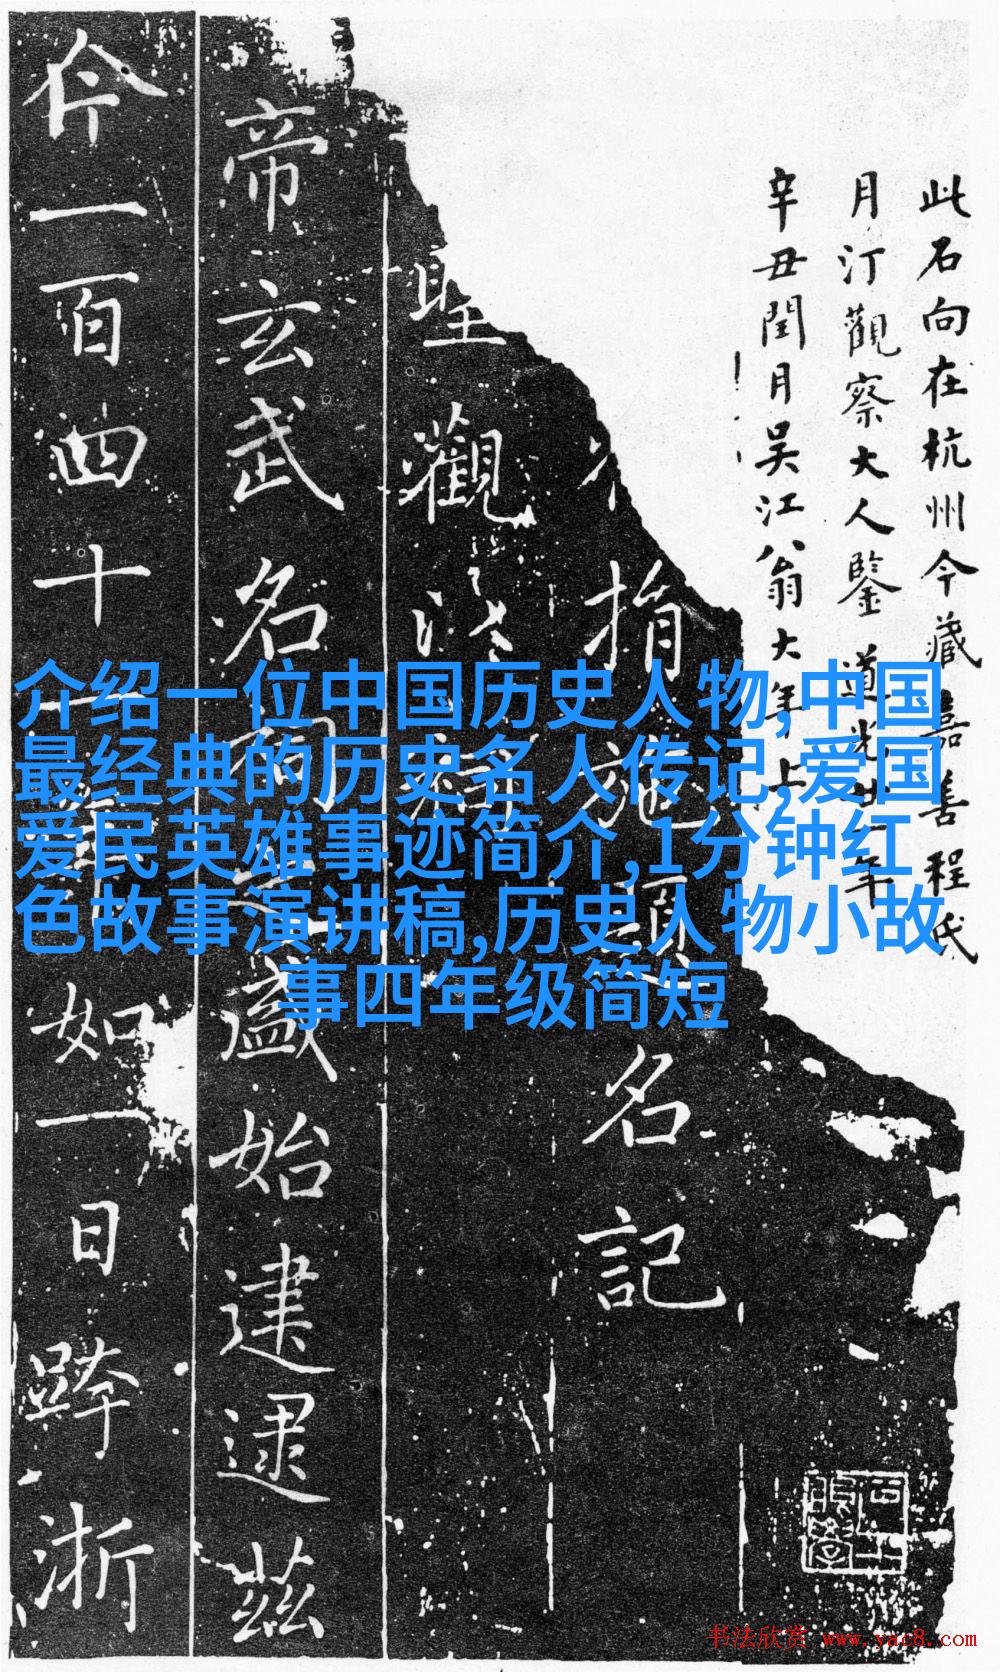 此石向在杭州今藏嘉善程氏
月汀觀察大人鑒道光廿一年
辛丑閏月吳江翁大年上
指
名記
觀
帝玄武名
盛始建逮茲
一百四十
如一日
浙
介绍一位中国历史人物,中国
最经典的历史名人传记,爱国
爱民英雄事迹简介,1分钟红
色故事演讲稿,历史人物小故
事四年级简短
书法欣赏 www.yac8.com